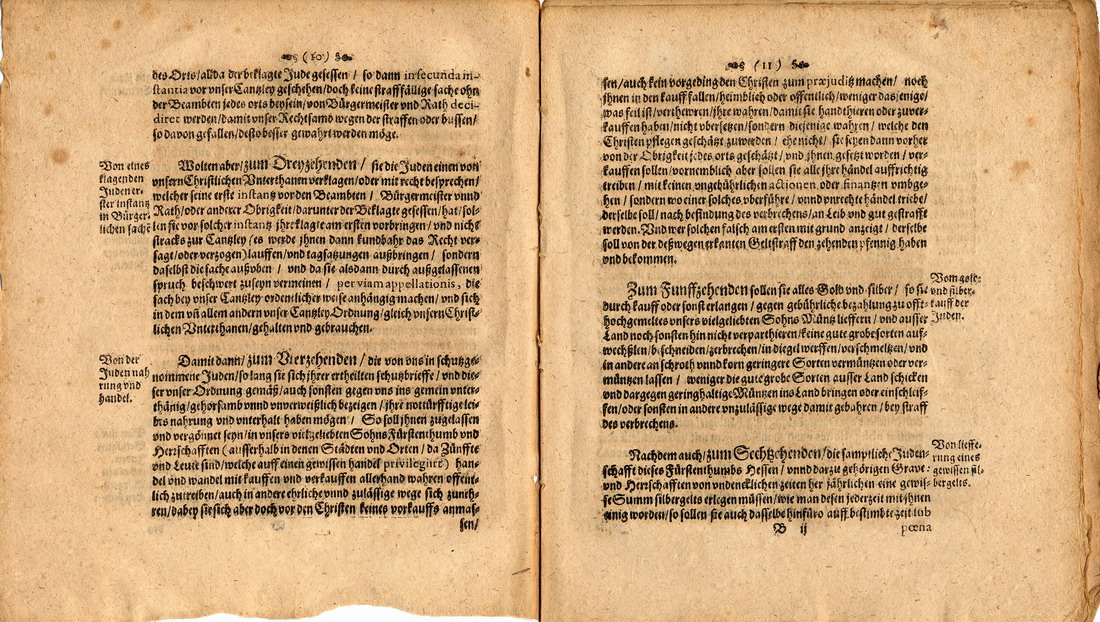 (10)
des Orts/allda der beklagte Jude gesessen / so dann in secunda in-
stantia vor vnser Cantzley geschehen/doch keine straffällige sache ohn
der Beambten jedes orts beysein/von Bürgermeister vnd Rath deci-
diret werden/damit vnser Rechtsame wegen der straffen oder bussen/
so davon gefallen/desto besser gewahrt werden möge.
Von eines
klagenden
Juden er-
ster instantz
in Bürger-
lichen sachē
Wolten aber/zum Dreyzehenden / sie die Juden einen von
vnsern Christlichen Vnterthanen verklagen/oder mit recht besprechen/
welcher seine erste instantz vor den Beambten / Bürgermeister vnnd
Rath/oder anderer Obrigkeit/darunter der Beklagte gesessen/hat/sol-
len sie vor solcher instantz jhre klagte am ersten vorbringen/ vnd nicht
stracks zur Cantzley (es werde jhnen dann kundbahr das Recht ver-
sagt/oder verzogen) lauffen/vnd tagsatzungen außbringen/ sondern
daselbst die sache außvben / vnd da sie alsdann durch außgelassenen
spruch beschwert zuseyn vermeinen / per viam appellationis, die
sach bey vnser Cantzley ordentlicher weise anhängig machen/ vnd sich
in dem vñ allem andern vnser Cantzley Ordnung/gleich vnsern Christ-
lichen Vnterthanen/gehalten vnd gebrauchen.
Von der
Juden nah
rung vnd
handel.
Damit dann/ zum Vierzehenden / die von vns in schutz ge-
nommene Juden/so lang sie sich jhrer ertheilten schutzbrieffe/ vnd die-
ser vnser Ordnung gemäß/auch sonsten gegen vns ins gemein vnter-
thänig/gehorsamb vnnd vnverweißlich bezeigen / jhre notturfftige lei-
bts nahrung vnd vnterhalt haben mögen / So soll jhnen zugelassen
vnd vergönnet seyn/in vnsers vielgeliebten Sohns Fürstenthumb vnd
Herrschafften (ausserhalb in denen Städten vnd Orten/ da Zünffte
vnd Leute sind/welche auff einen gewissen handel privilegirt) han-
del vnd wandel mit kauffen vnd verkauffen allerhand wahren offent-
lich zutreiben/auch in andere ehrliche vnnd zulässige wege sich zuneh-
ren/dabey sie sich aber doch vor den Christen keines vorkauffs anmas-
sen/
(11)
sen/auch kein vorgeding den Christen zum præjuditz machen/ noch
jhnen in den kauff fallen/heimblich oder offentlich/weniger dasjenige/
was feil ist/vertheuren/jhre wahren/damit sie handthieren oder zuver-
kauffen haben/nicht vbersetzen/sondern diejenige wahren/ welche den
Christen pflegen geschätzt zuwerden / ehe nicht/ sie seyen dann vorher
von der Obrigkeit jedes orts geschätzt/vnd jhnen gesetzt worden/ ver-
kauffen sollen/vornemblich aber sollen sie alle jhre händel auffrichtig
treiben / mit keinen vngebührlichen actionen oder finantzen vmbge-
hen / sondern wo einer solches vberführe/ vnnd vnrechte händel triebe/
derselbe soll/ nach befindung des verbrechens/an Leib vnd gut gestrafft
werden. Vnd wer solchen falsch am ersten mit grund anzeigt / derselbe
soll von der deßwegen erkanten Geltstraff den zehenden pfennig haben
vnd bekommen.
Vom gold-
vnd silber-
kauff der
Juden.
Zum Funffzehenden sollen sie alles Gold vnd silber / so sie
durch kauff oder sonst erlangen / gegen gebührliche bezahlung zu offt-
hochgemeltes vnsers vielgeliebten Sohns Müntz lieffern/ vnd ausser
Land noch sonsten hin nicht verparthieren/keine gute grobe sorten auff-
wechßlen/beschneiden/zerbrechen/in diegel werffen/verschmeltzen/vnd
in andere an schroth vnnd korn geringere Sorten vermüntzen oder ver-
müntzen lassen / weniger die gute grobe Sorten ausser Land schicken
vnd dargegen geringhaltige Müntzen ins Land bringen oder einschleif-
fen/oder sonsten in andere vnzulässige wege damit gebahren / bey straff
des verbrechens.
Von lieffe-
rung eines
gewissen sil-
bergelts.
Nachdem auch/ zum Sechtzehenden/ die samptliche Juden-
schafft dieses Fürstenthumbs Hessen / vnnd darzu gehörigen Grave-
vnd Herrschafften von vndencklichen zeiten her jährlichen eine gewis-
se Summ silbergelts erlegen müssen/wie man desen jederzeit mit jhnen
einig worden/so sollen sie auch dasselbe hinfüro auff bestimbte zeit sub
B ij
pœna